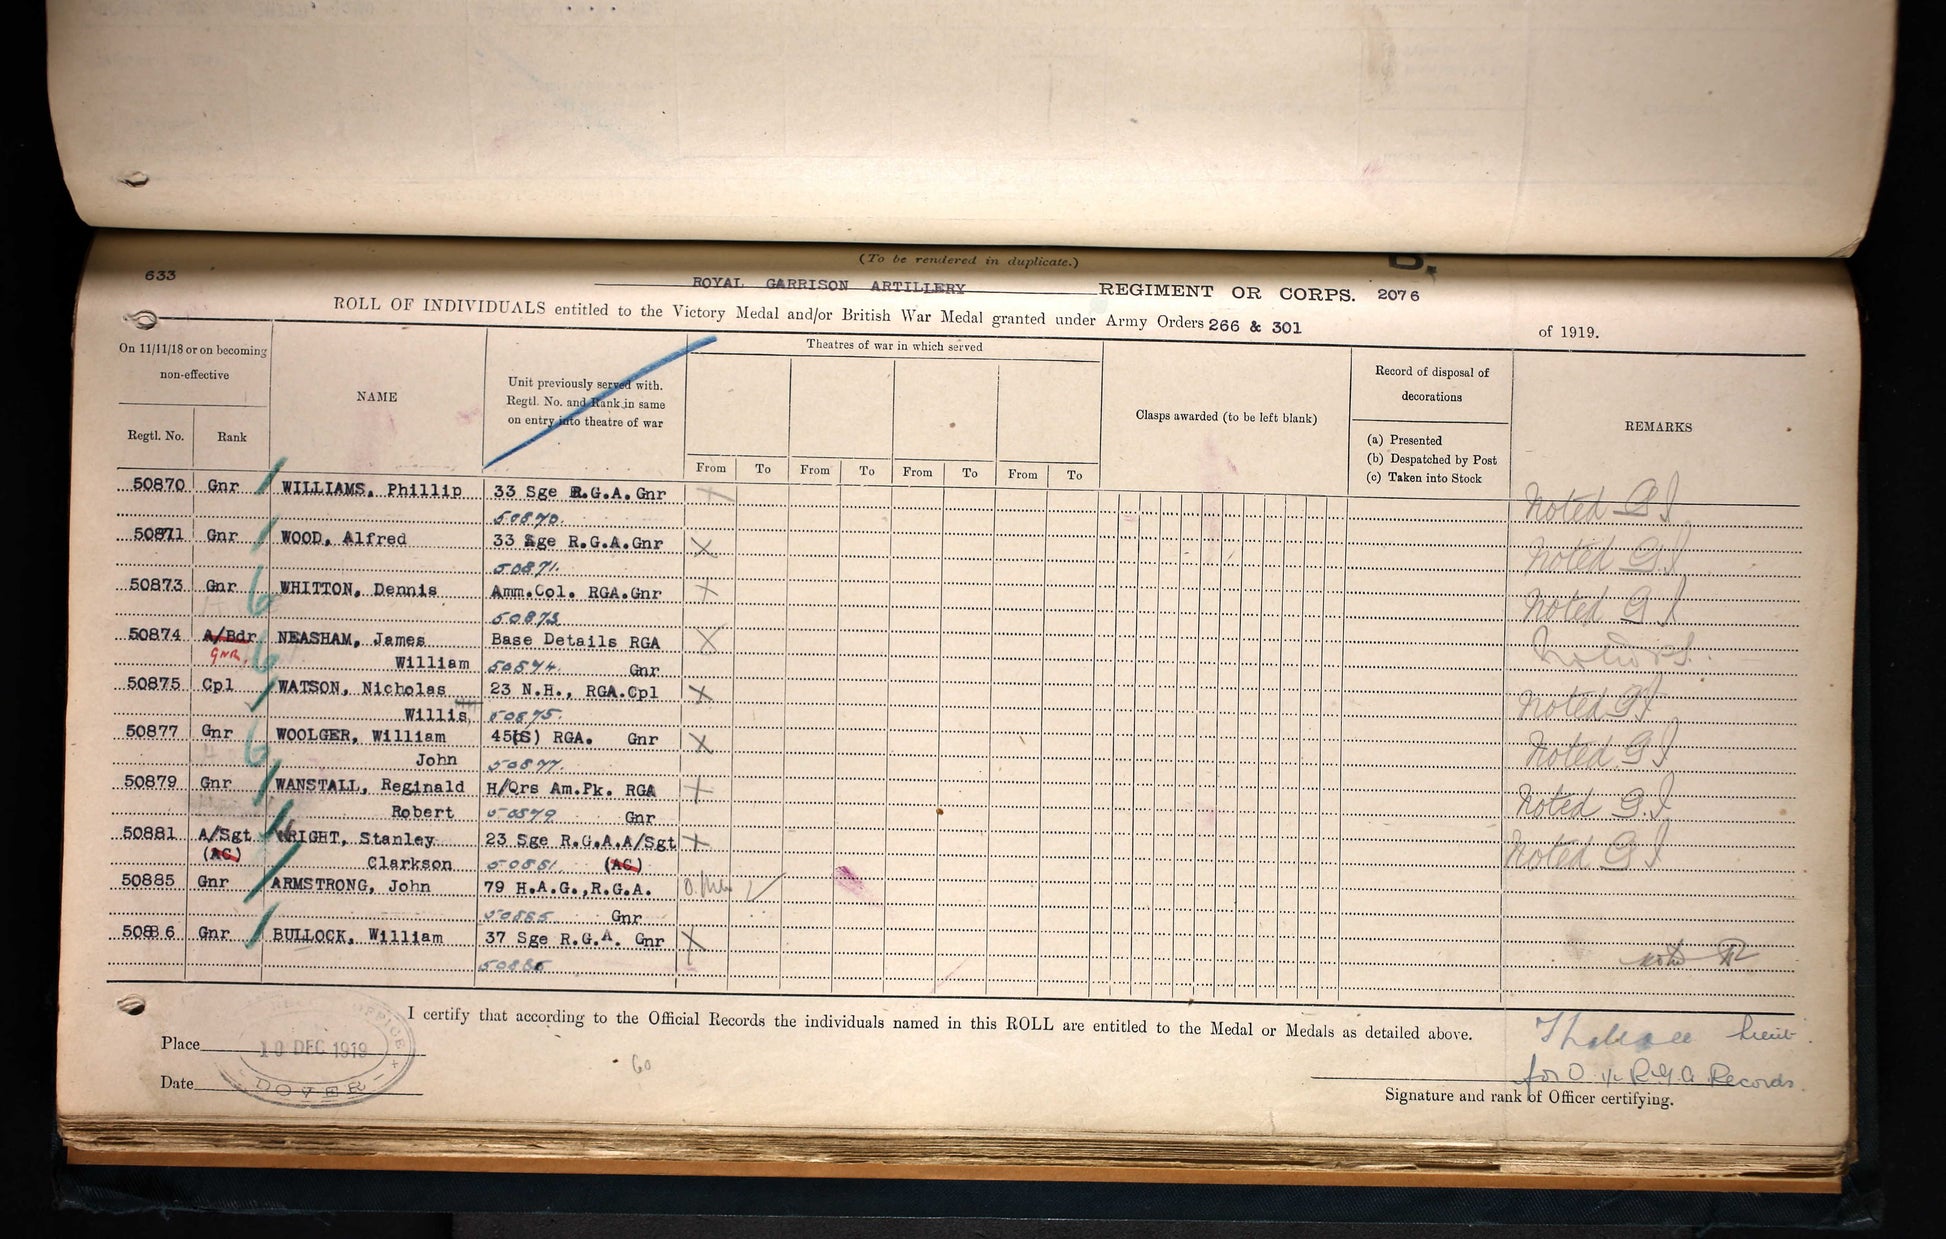 (To be rendered in duplicate.)
633
ROYAL GARRISON ARTILLERY REGIMENT OR CORPS. 2076
ROLL OF INDIVIDUALS entitled to the Victory Medal and/or British War Medal granted under Army Orders 266 & 301 of 1919.
On 11/11/18 or on becoming non-effective
Regtl. No. Rank
NAME
Unit previously served with.
Regtl. No. and Rank in same
on entry into theatre of war
Theatres of war in which served
From To From To From To From To
Clasps awarded (to be left blank)
Record of disposal of
decorations
(a) Presented
(b) Despatched by Post
(c) Taken into Stock
REMARKS
50870 Gnr WILLIAMS, Phillip 33 Sge R.G.A. Gnr X Noted G I
50870.
50871 Gnr WOOD, Alfred 33 Sge R.G.A. Gnr X Noted G I
50871.
50873 Gnr 6 WHITTON, Dennis Amm.Col. RGA.Gnr X Noted G I
50873
50874 A/Bdr 6 NEASHAM, James Base Details RGA X
GNR. William 50874. Gnr
50875 Cpl WATSON, Nicholas 23 N.H., RGA.Cpl X Noted G I
Willis 50875.
50877 Gnr 6 WOOLGER, William 45(S) RGA. Gnr X Noted G I
John 50877.
50879 Gnr WANSTALL, Reginald H/Qrs Am.Pk. RGA X Noted G I
Robert 50879 Gnr
50881 A/Sgt WRIGHT, Stanley 23 Sge R.G.A.A/Sgt X Noted G I
(AC) Clarkson 50881. (AC)
50885 Gnr ARMSTRONG, John 79 H.A.G.,R.G.A.
50885 Gnr
50886 Gnr BULLOCK, William 37 Sge R.G.A. Gnr X
50886
I certify that according to the Official Records the individuals named in this ROLL are entitled to the Medal or Medals as detailed above.
Place
10 DEC 1919
Date
DOVER
60
Lieut.
for O i/c R.G.A Records.
Signature and rank of Officer certifying.